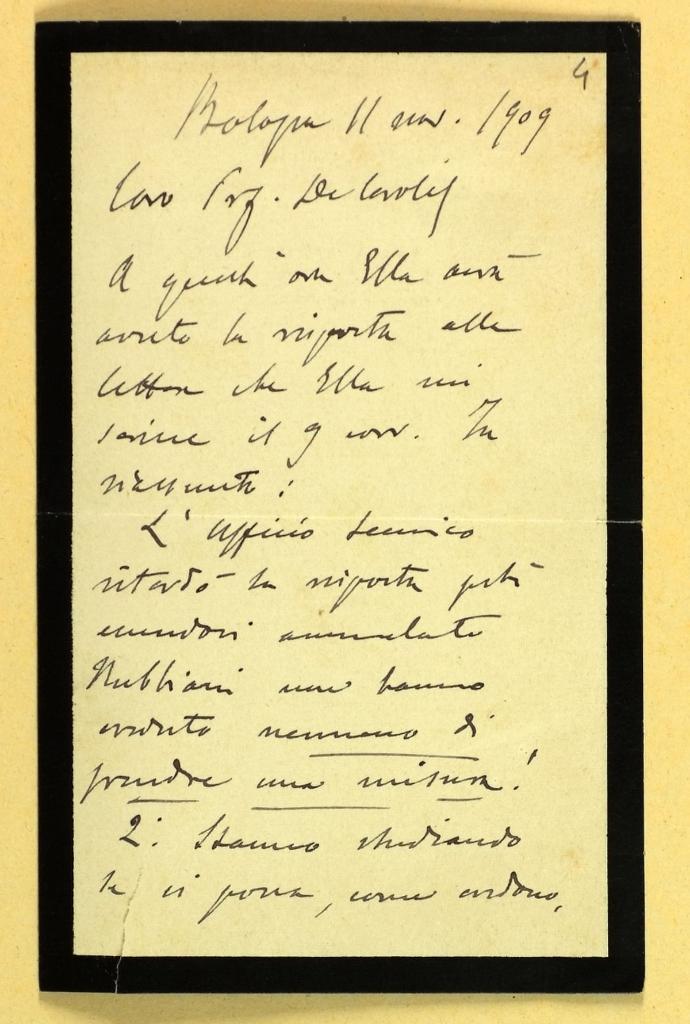 4
Bologna 11 nov. 1909
Caro Prof. De Carolis
A quest' ora Ella avrà
avuto la risposta alla
lettera che Ella mi
scrisse il 9 corr. In
riassunto:
L' Ufficio tecnico
ritardò la risposta perchè
essendosi ammalato
Rubbiani non hanno
creduto nemmeno di
prendre una misura!
2°. Stanno studiando
se si possa, come credono,